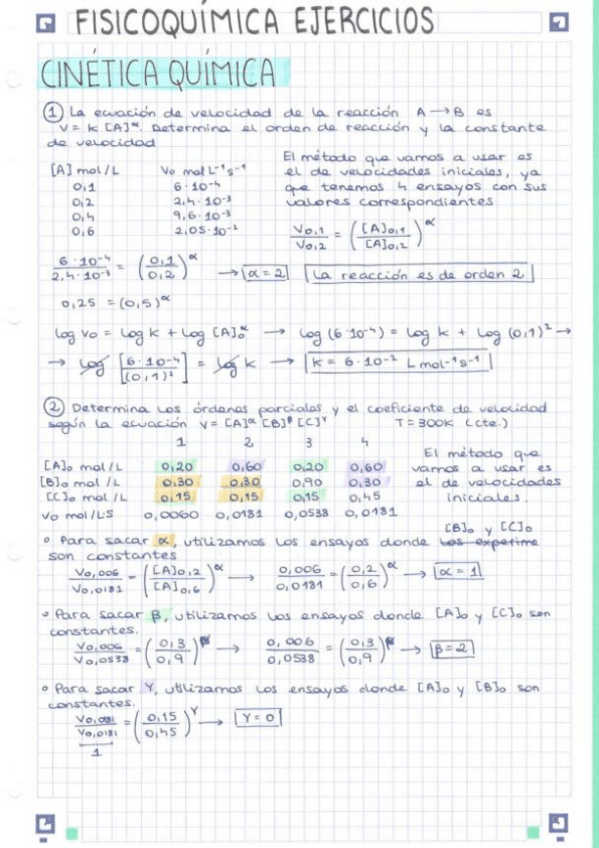 FISICOQUÍMICA EJERCICIOS
CINÉTICA QUÍMICA
① La ecuación de velocidad de la reacción A → B es
V = K [A]^α. Determina el orden de reacción y la constante
de velocidad
[A] mol/L    Vo mol L⁻¹ s⁻¹
0,1    6·10⁻⁴
0,2    2,4·10⁻³
0,4    9,6·10⁻³
0,6    2,05·10⁻²
El método que vamos a usar es
el de velocidades iniciales, ya
que tenemos 4 ensayos con sus
valores correspondientes
Vo,1 / Vo,2 = ([A]o,1 / [A]o,2)^α
6·10⁻⁴ / 2,4·10⁻³ = (0,1 / 0,2)^α → α = 2    La reacción es de orden 2
0,25 = (0,5)^α
log Vo = log K + log [A]o^α → log (6·10⁻⁴) = log K + log (0,1)² →
→ log [6·10⁻⁴ / (0,1)²] = log K → K = 6·10⁻² L mol⁻¹ s⁻¹
② Determina los órdenes parciales y el coeficiente de velocidad
según la ecuación V = [A]^α [B]^β [C]^γ    T = 300K (cte.)
1    2    3    4
[A]o mol/L    0,20    0,60    0,20    0,60
[B]o mol/L    0,30    0,30    0,90    0,30
[C]o mol/L    0,15    0,15    0,15    0,45
Vo mol/L·S    0,0060    0,0181    0,0538    0,0181
El método que
vamos a usar es
el de velocidades
iniciales.
• Para sacar α, utilizamos los ensayos donde los experime [B]o y [C]o
son constantes
Vo,006 / Vo,0181 = ([A]o,2 / [A]o,6)^α → 0,006 / 0,0181 = (0,2 / 0,6)^α → α = 1
• Para sacar β, utilizamos los ensayos donde [A]o y [C]o son
constantes.
Vo,006 / Vo,0538 = (0,3 / 0,9)^β → 0,006 / 0,0538 = (0,3 / 0,9)^β → β = 2
• Para sacar γ, utilizamos los ensayos donde [A]o y [B]o son
constantes.
Vo,081 / Vo,0181 = (0,15 / 0,45)^γ → γ = 0
1